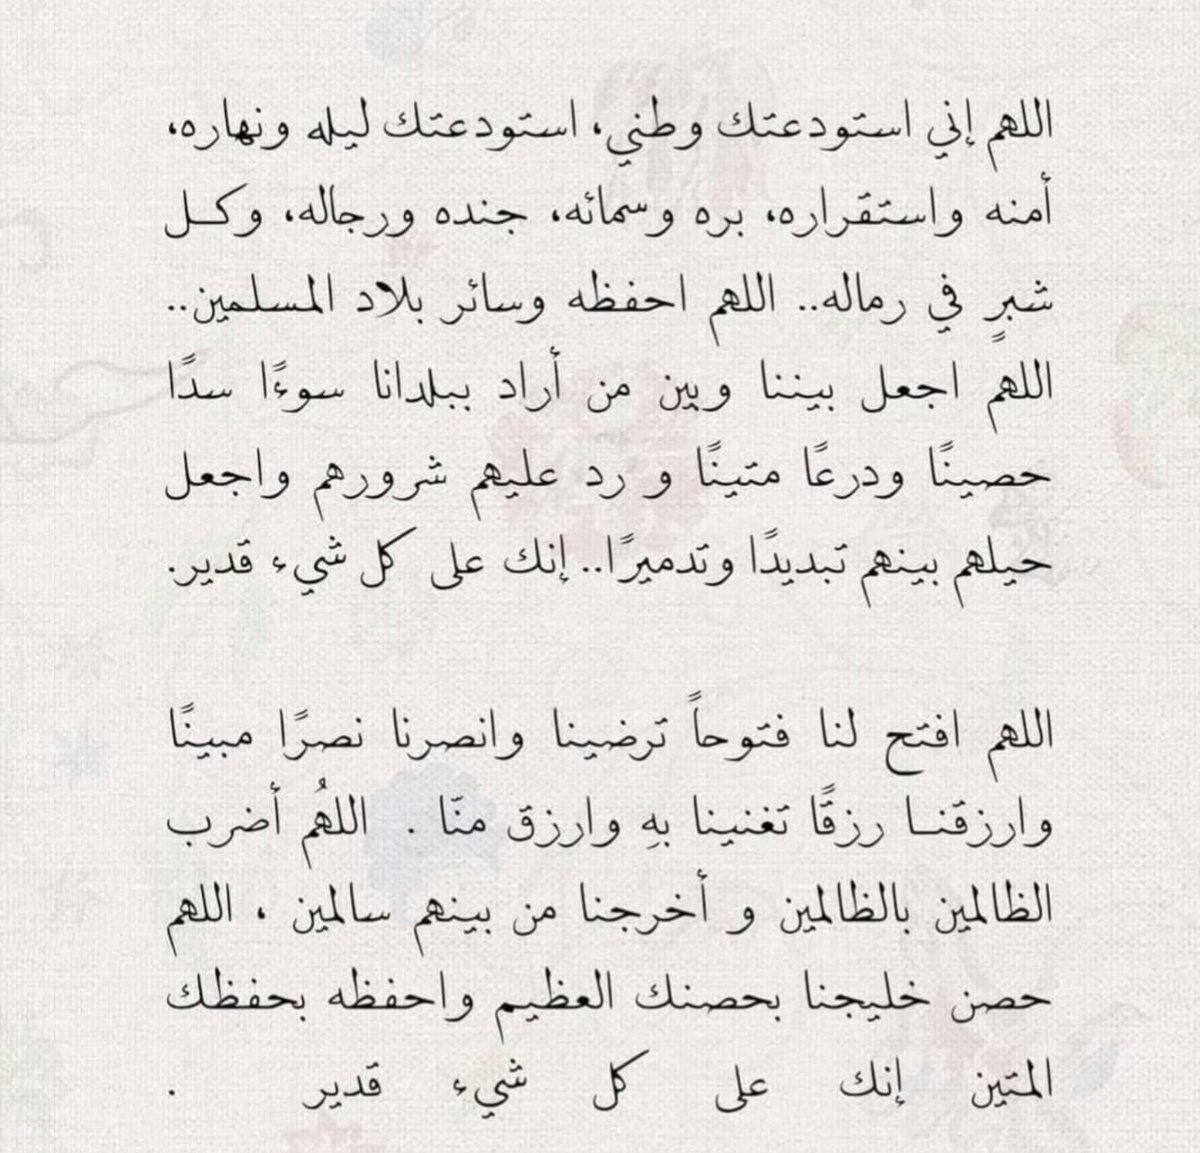 اللهم إني استودعتك وطني، استودعتك ليله ونهاره،
أمنه واستقراره، بره وسمائه، جنده ورجاله، وكل
شبرٍ في رماله.. اللهم احفظه وسائر بلاد المسلمين..
اللهم اجعل بيننا وبين من أراد ببلدانا سوءًا سدًا
حصينًا ودرعًا متينًا و رد عليهم شرورهم واجعل
حيلهم بينهم تبديدًا وتدميرًا.. إنك على كل شيء قدير.
اللهم افتح لنا فتوحاً ترضينا وانصرنا نصرًا مبينًا
وارزقنا رزقًا تغنينا بهِ وارزق منّا . اللهُم أضرب
الظالمين بالظالمين و أخرجنا من بينهم سالمين ، اللهم
حصن خليجنا بحصنك العظيم واحفظه بحفظك
المتين إنك على كل شيء قدير .